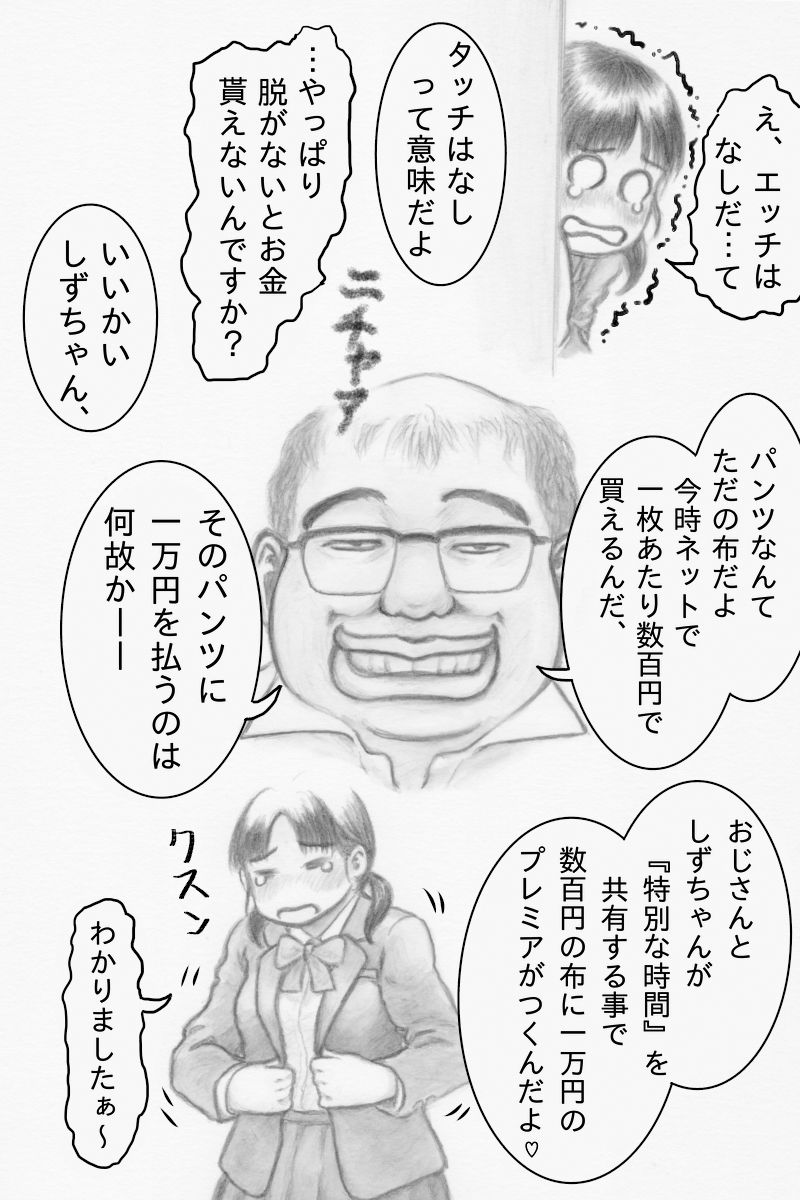 え、エッチは
なしだ…て
タッチはなし
って意味だよ
…やっぱり
脱がないとお金
貰えないんですか？
いいかい
しずちゃん、
ニチャア
パンツなんて
ただの布だよ
今時ネットで
一枚あたり数百円で
買えるんだ、
そのパンツに
一万円を払うのは
何故かーー
おじさんと
しずちゃんが
『特別な時間』を
共有する事で
数百円の布に一万円の
プレミアがつくんだよ♡
クスン
わかりましたぁ～